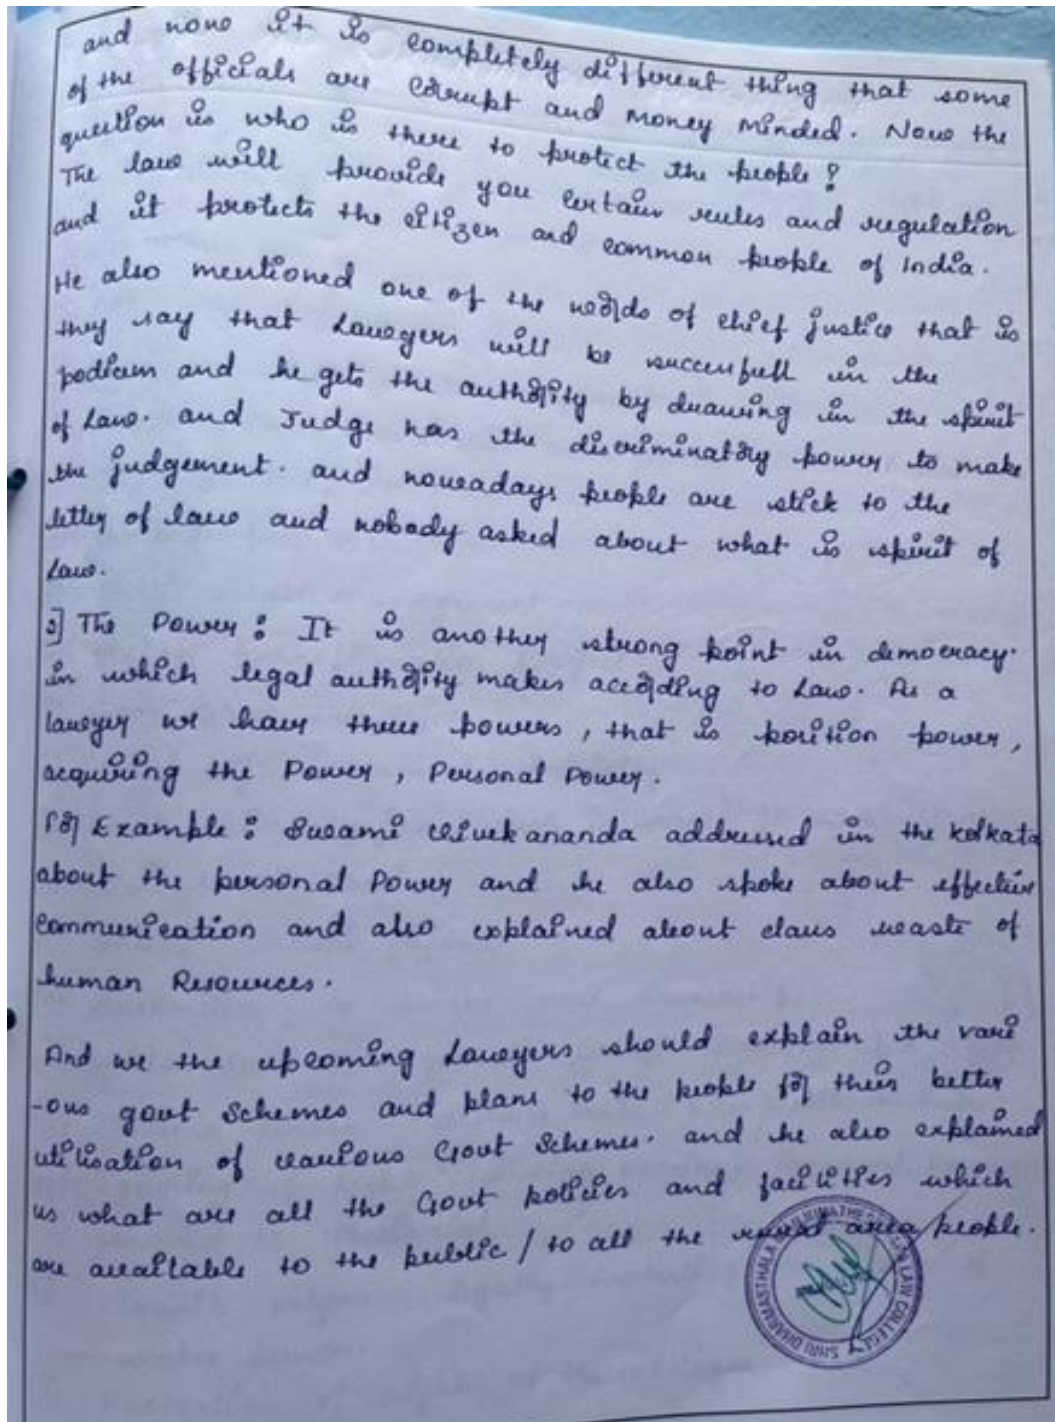 and now it is completely different thing that some
of the officials are corrupt and money minded. Now the
question is who is there to protect the people?
The law will provide you certain rules and regulation
and it protects the citizen and common people of India.
He also mentioned one of the words of chief justice that is
they say that Lawyers will be successfull in the
podium and he gets the authority by drawing in the spirit
of Law. and Judge has the discriminatory power to make
the judgement. and nowadays people are stick to the
letter of law and nobody asked about what is spirit of
Law.
The Power: It is another strong point in democracy.
in which legal authority makes according to Law. As a
lawyer we have three powers, that is position power,
acquiring the Power, Personal Power.
For Example: Swami vivekananda addressed in the kolkata
about the personal Power and he also spoke about effective
Communication and also explained about waste of
human Resources.
And we the upcoming Lawyers should explain the vari
-ous govt Schemes and plans to the people for their better
utilisation of various Govt Schemes. and he also explained
us what are all the Govt policies and facilities which
are available to the public / to all the rural area people.
SHRI DHARMASTHALA MANJUNATHESHWARA LAW COLLEGE